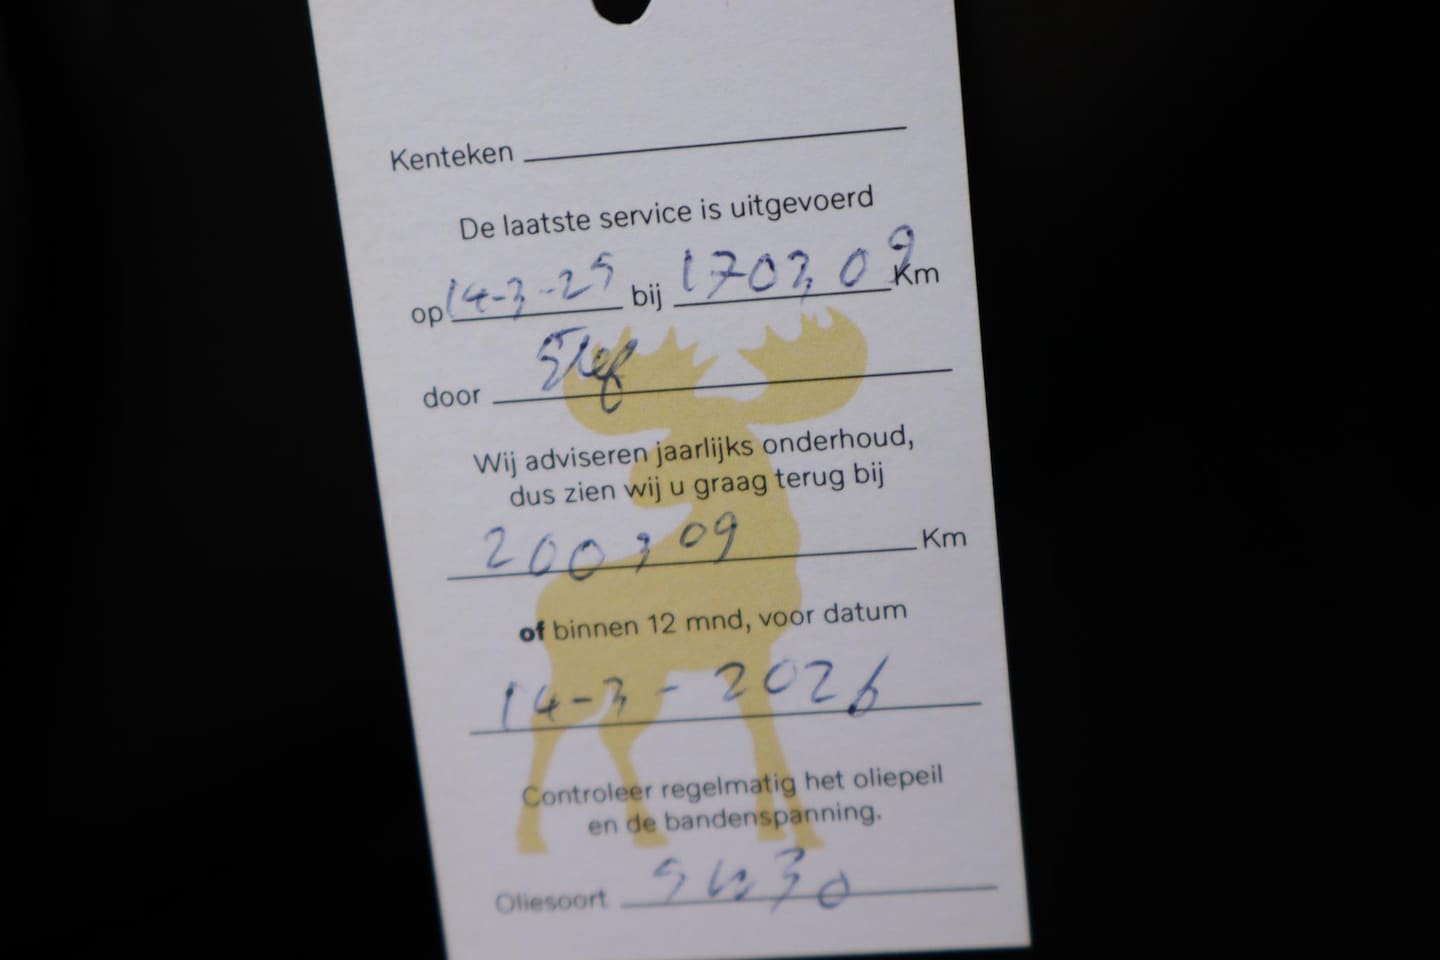 Kenteken
De laatste service is uitgevoerd
op 14-3-25 bij 170309 Km
door Stef
Wij adviseren jaarlijks onderhoud,
dus zien wij u graag terug bij
200309 Km
of binnen 12 mnd, voor datum
14-3-2026
Controleer regelmatig het oliepeil
en de bandenspanning.
Oliesoort 5W30